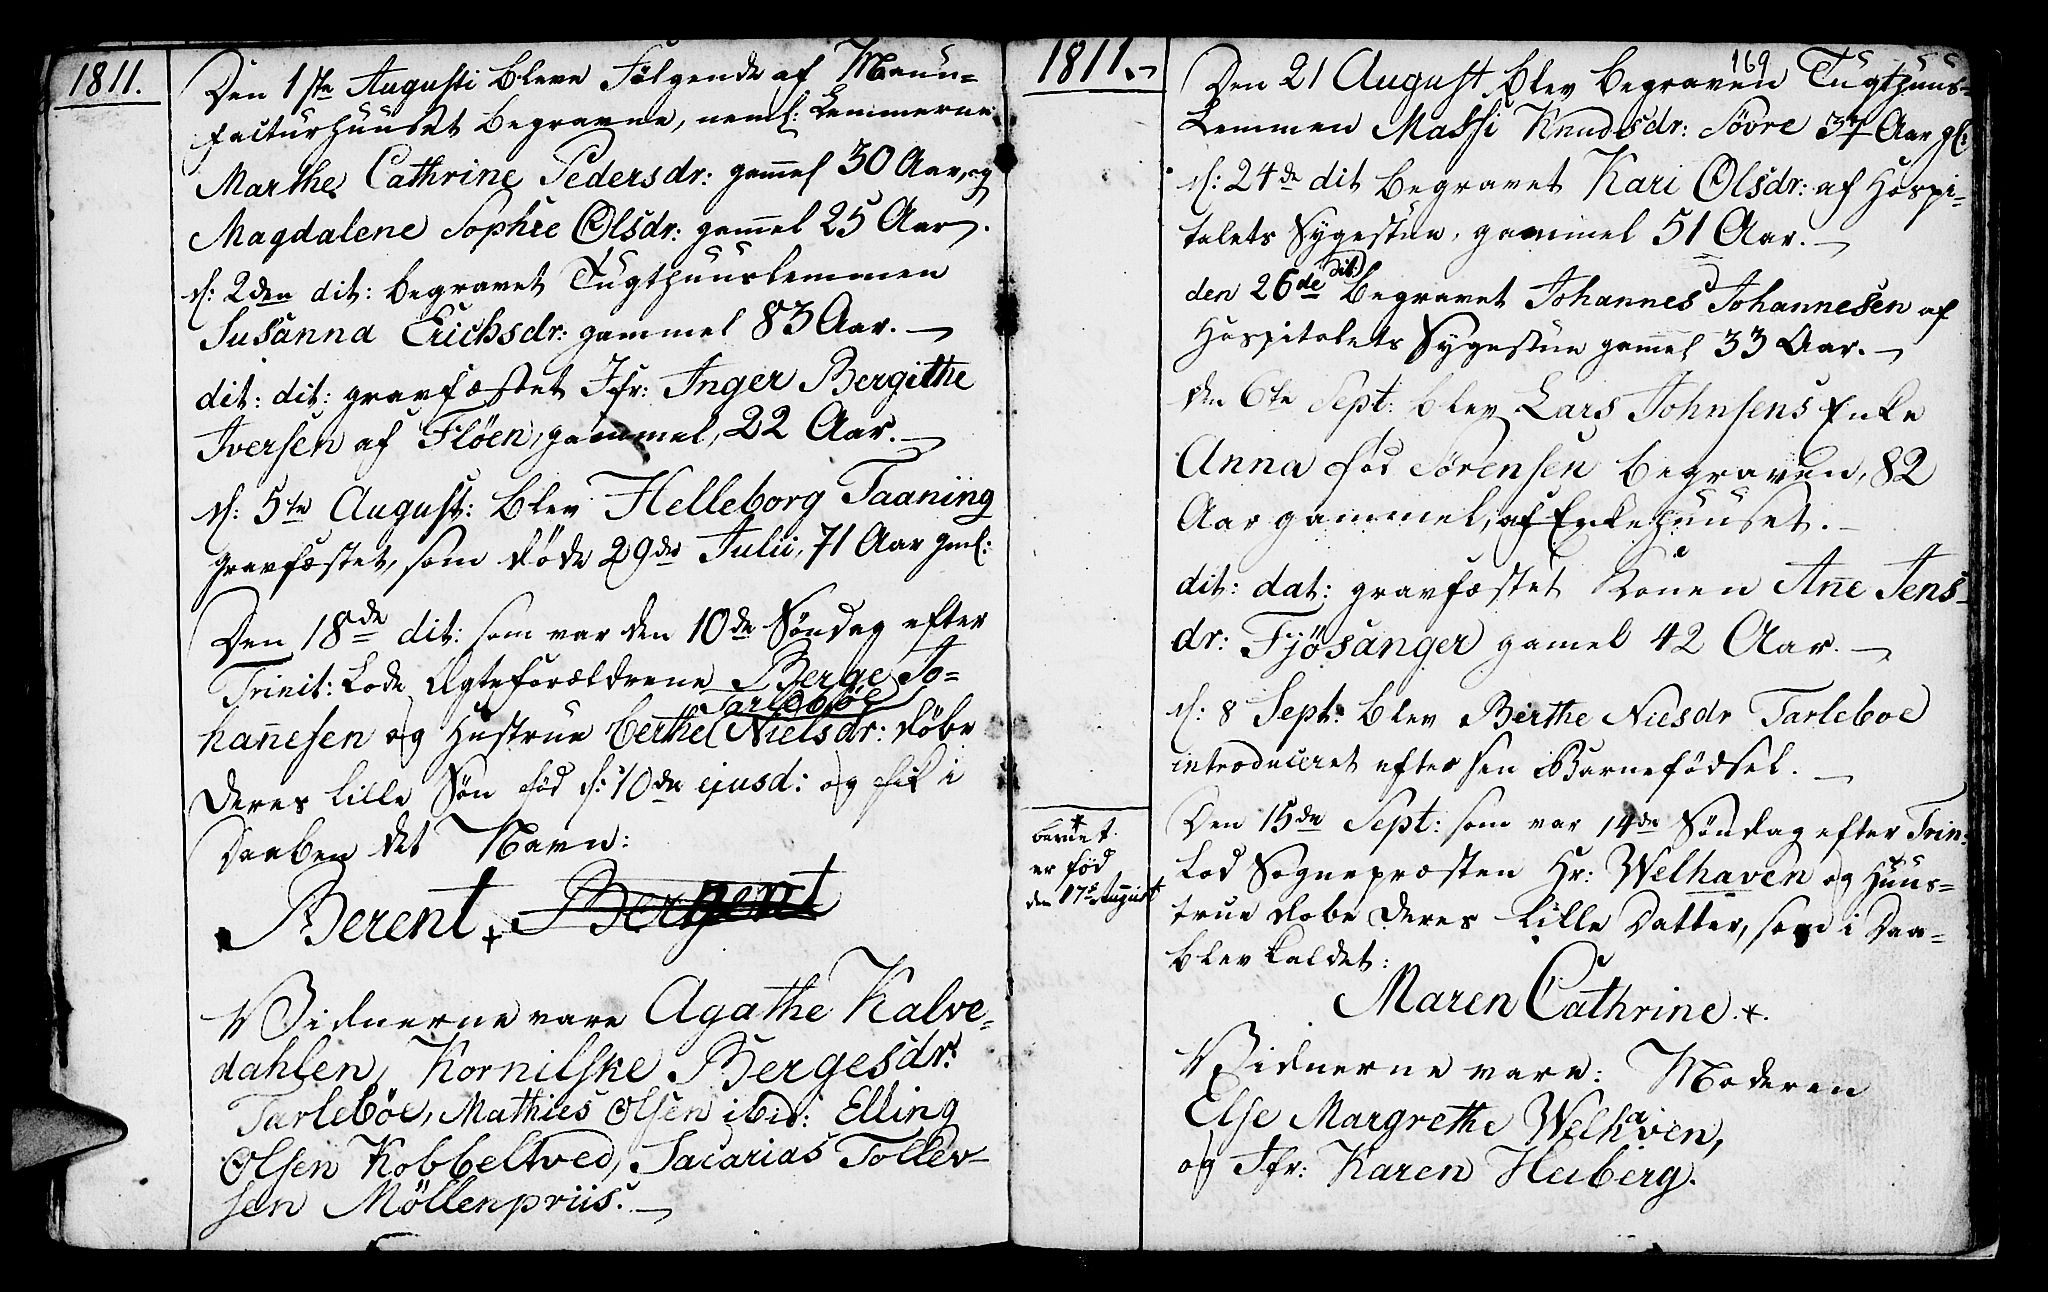 1811.
Den 1ste Augusti bleve Følgende af Manu-
facturhuuset begravne, neml: Lemmerne
Marthe Cathrine Pedersdr: gam̄el 30 Aar, og
Magdalene Sophie Olsdr: gam̄el 25 Aar.
d: 2den dit: begravet Tugthuuslemmen
Susanna Erichsdr: gammel 83 Aar.
dit: dit: gravfæstet Jfr: Inger Bergithe
Iversen af Fløen, gammel, 22 Aar.
d: 5te August: blev Helleborg Taaning
gravfæstet, som døde 29de Julii, 71 Aar gml:
Den 18de dit: som var den 10de Søndag efter
Trinit: Lode Ægteforældrene Berge Jo-
Tarlebøe
han̄esen og Hustrue Berthe Nielsdr: døbe
deres lille Søn fød d: 10de ejusd: og fik i
Daaben det Navn:
Berent + Bergent
Vidnerne vare Agathe Kalve-
dahlen, Kornilske Bergesdr:
Tarlebøe, Mathies Olsen ibid: Elling
Olsen Kobbeltved, Sacarias Tollev-
sen Möllenpriis.
1811.
169
Den 21 August blev begraven Tugthuus-
Lemmen Massi Knudsdr: Søvre 37 Aar gl:
d: 24de dit begravet Kari Olsdr: af Hospi-
talets Sygestue, gammel 51 Aar.
den 26de dit: begravet Johannes Johannesen af
Hospitalets Sygestue gam̄el 33 Aar.
den 6te Sept: blev Lars Johnsens Enke
Anna fød Sørensen begraven, 82
Aar gammel, af Enkehuuset.
dit: dat: gravfæstet Konen An̄e Jens-
dr: Fjösanger gamel 42 Aar.
d: 8 Sept: blev Berthe Niesdr Tarleboe
introduceret efter sin Barnefödsel.
Den 15de Sept: som var 14de Søndag efter Trin:
Lod Sognepræsten Hr: Welhaven og Huus-
true døbe deres lille Datter, som i Daa-
blev kaldet:
Maren Cathrine. +.
Vidnerne vare: Moderen
Else Margrethe Welhaven,
og Jfr: Karen Heiberg.
+
barnet
er fød
den 17e August